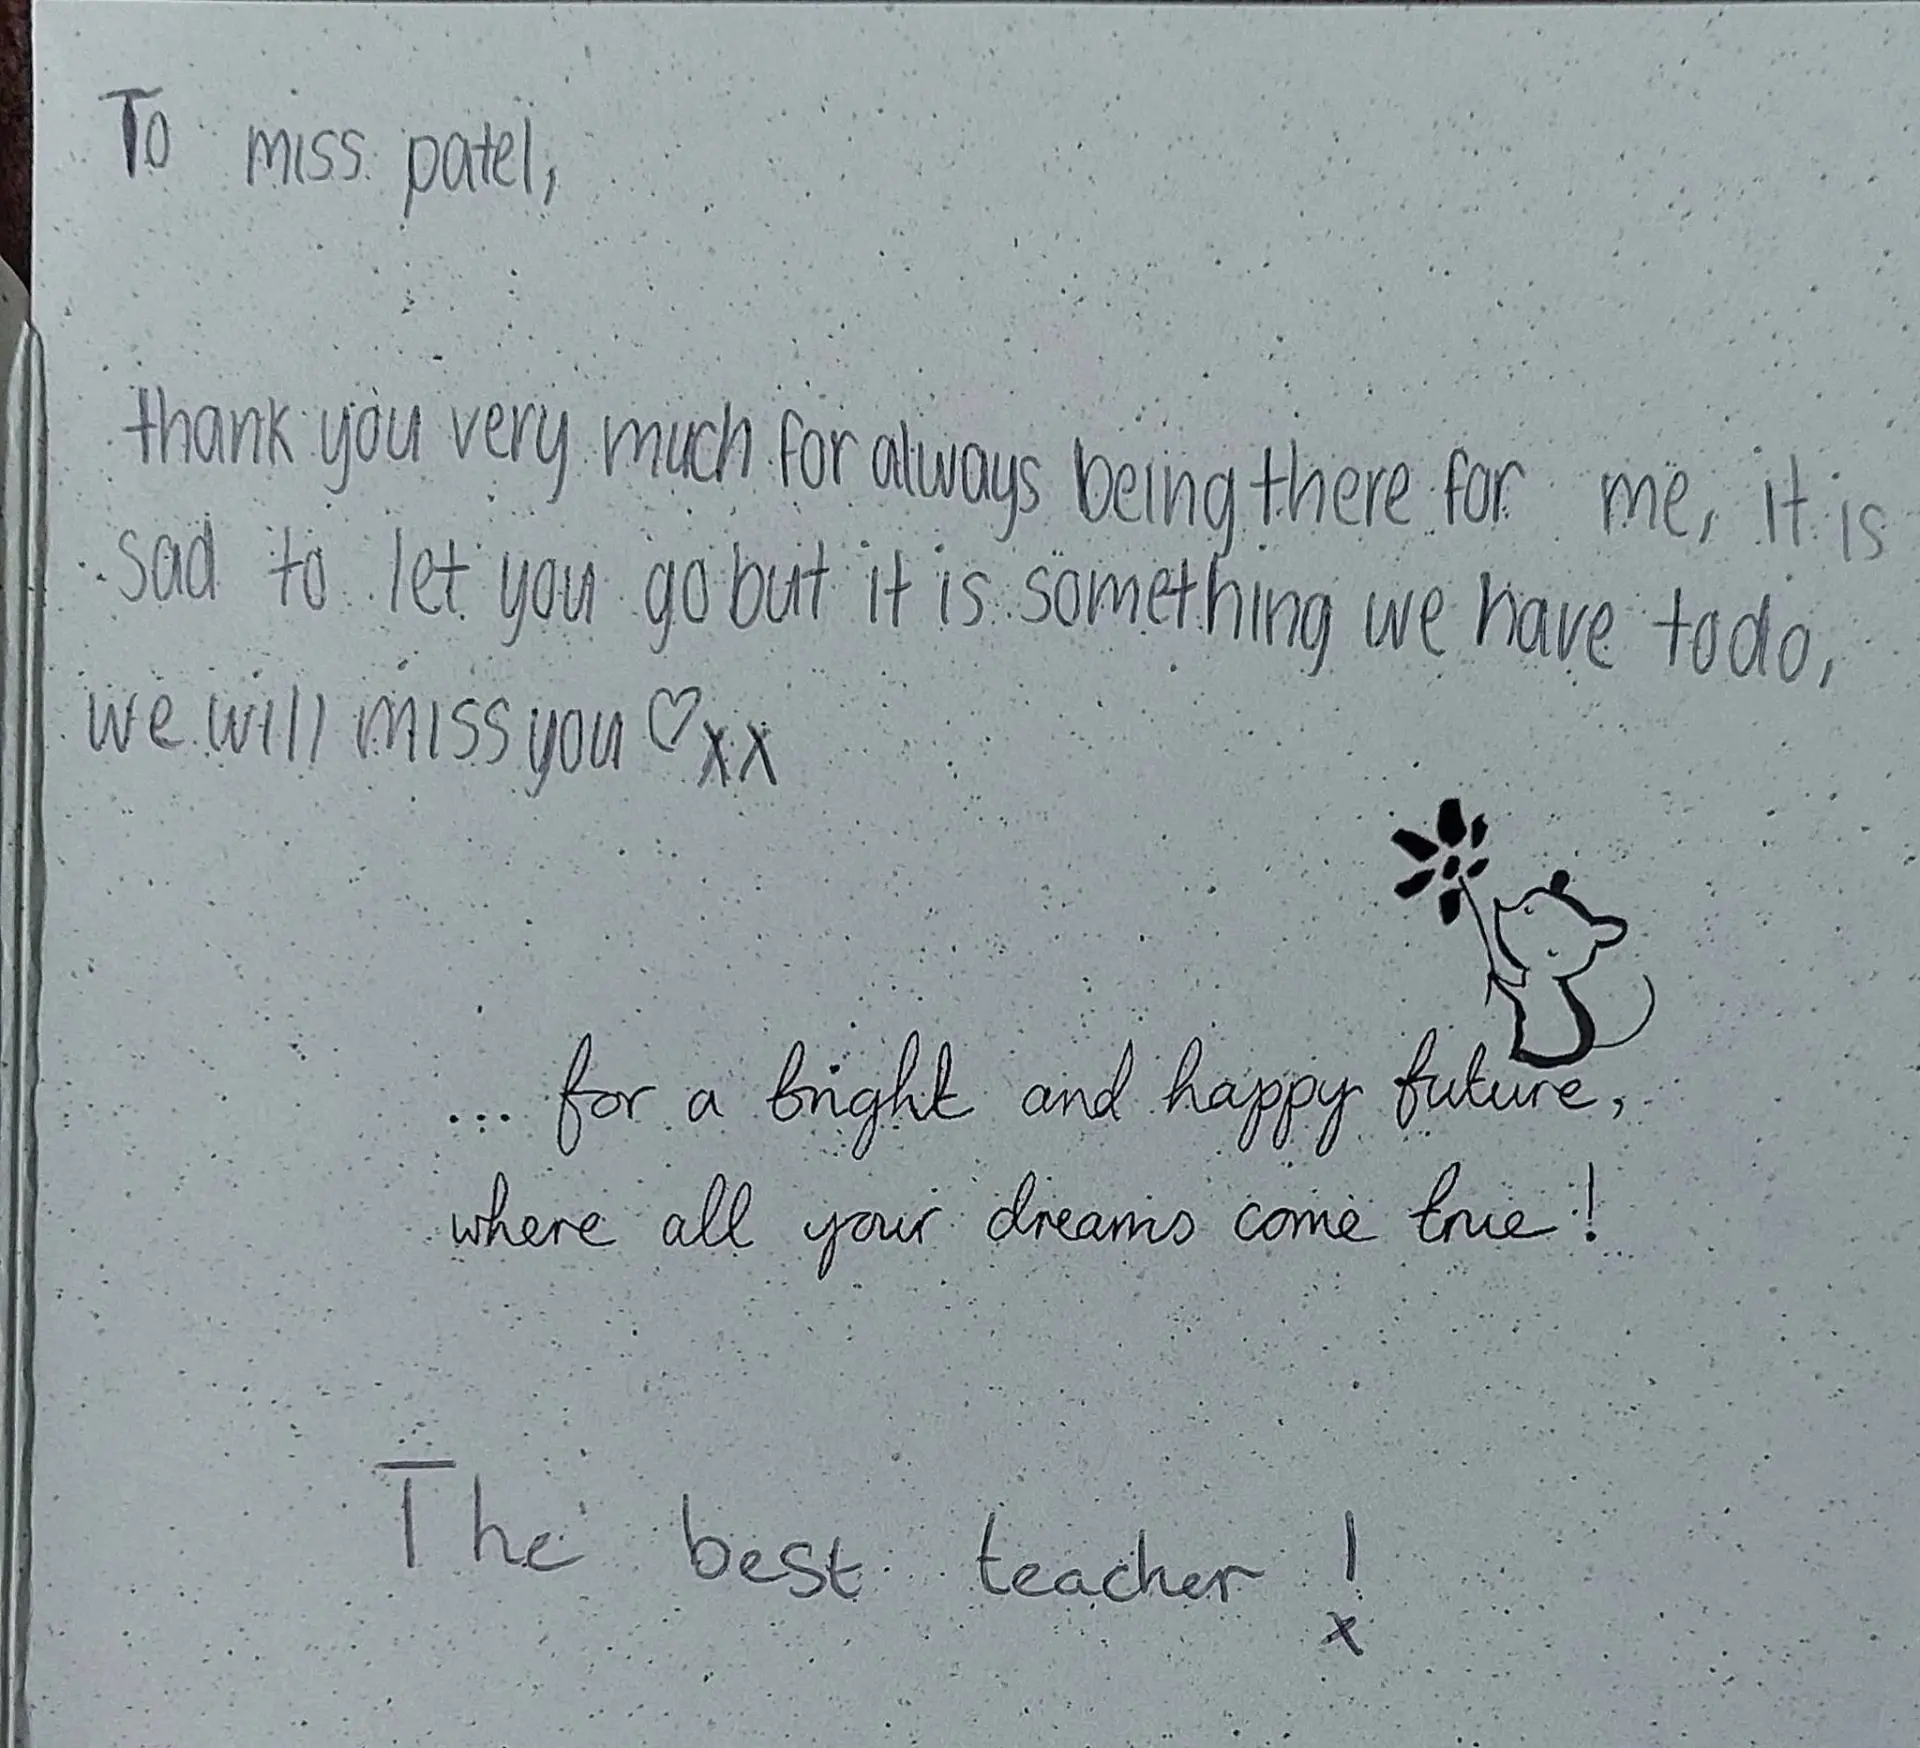 To miss patel,
thank you very much for always being there for me, it is
sad to let you go but it is something we have to do,
we will miss you ♡xx
... for a bright and happy future,
where all your dreams come true!
The best teacher!
x